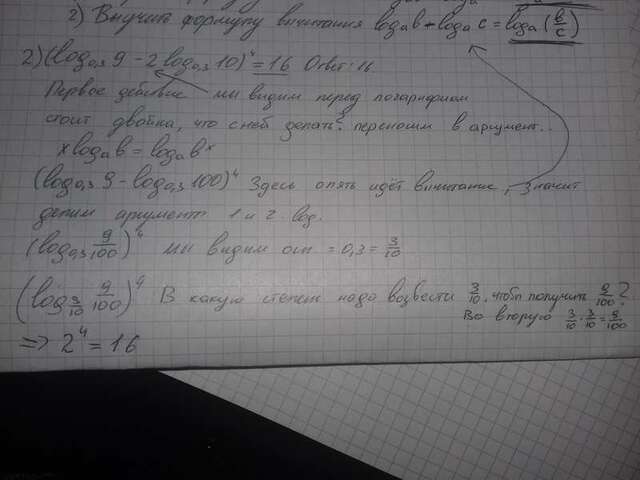 2) Выучить формулу вычитания log_a b + log_a c = log_a (b/c)
2) (log_0,3 9 - 2 log_0,3 10)^4 = 16 Ответ: 16.
Первое действие мы видим перед логарифмом
стоит двойка, что с ней делать? переносим в аргумент..
x log_a b = log_a b^x
(log_0,3 9 - log_0,3 100)^4 Здесь опять идёт вычитание, значит
делим аргумент 1 и 2 log.
(log_0,3 9/100)^4 мы видим осн = 0,3 = 3/10
(log_3/10 9/100)^4 В какую степень надо возвести 3/10, чтоб получить 9/100?
Во вторую 3/10 · 3/10 = 9/100
=> 2^4 = 16